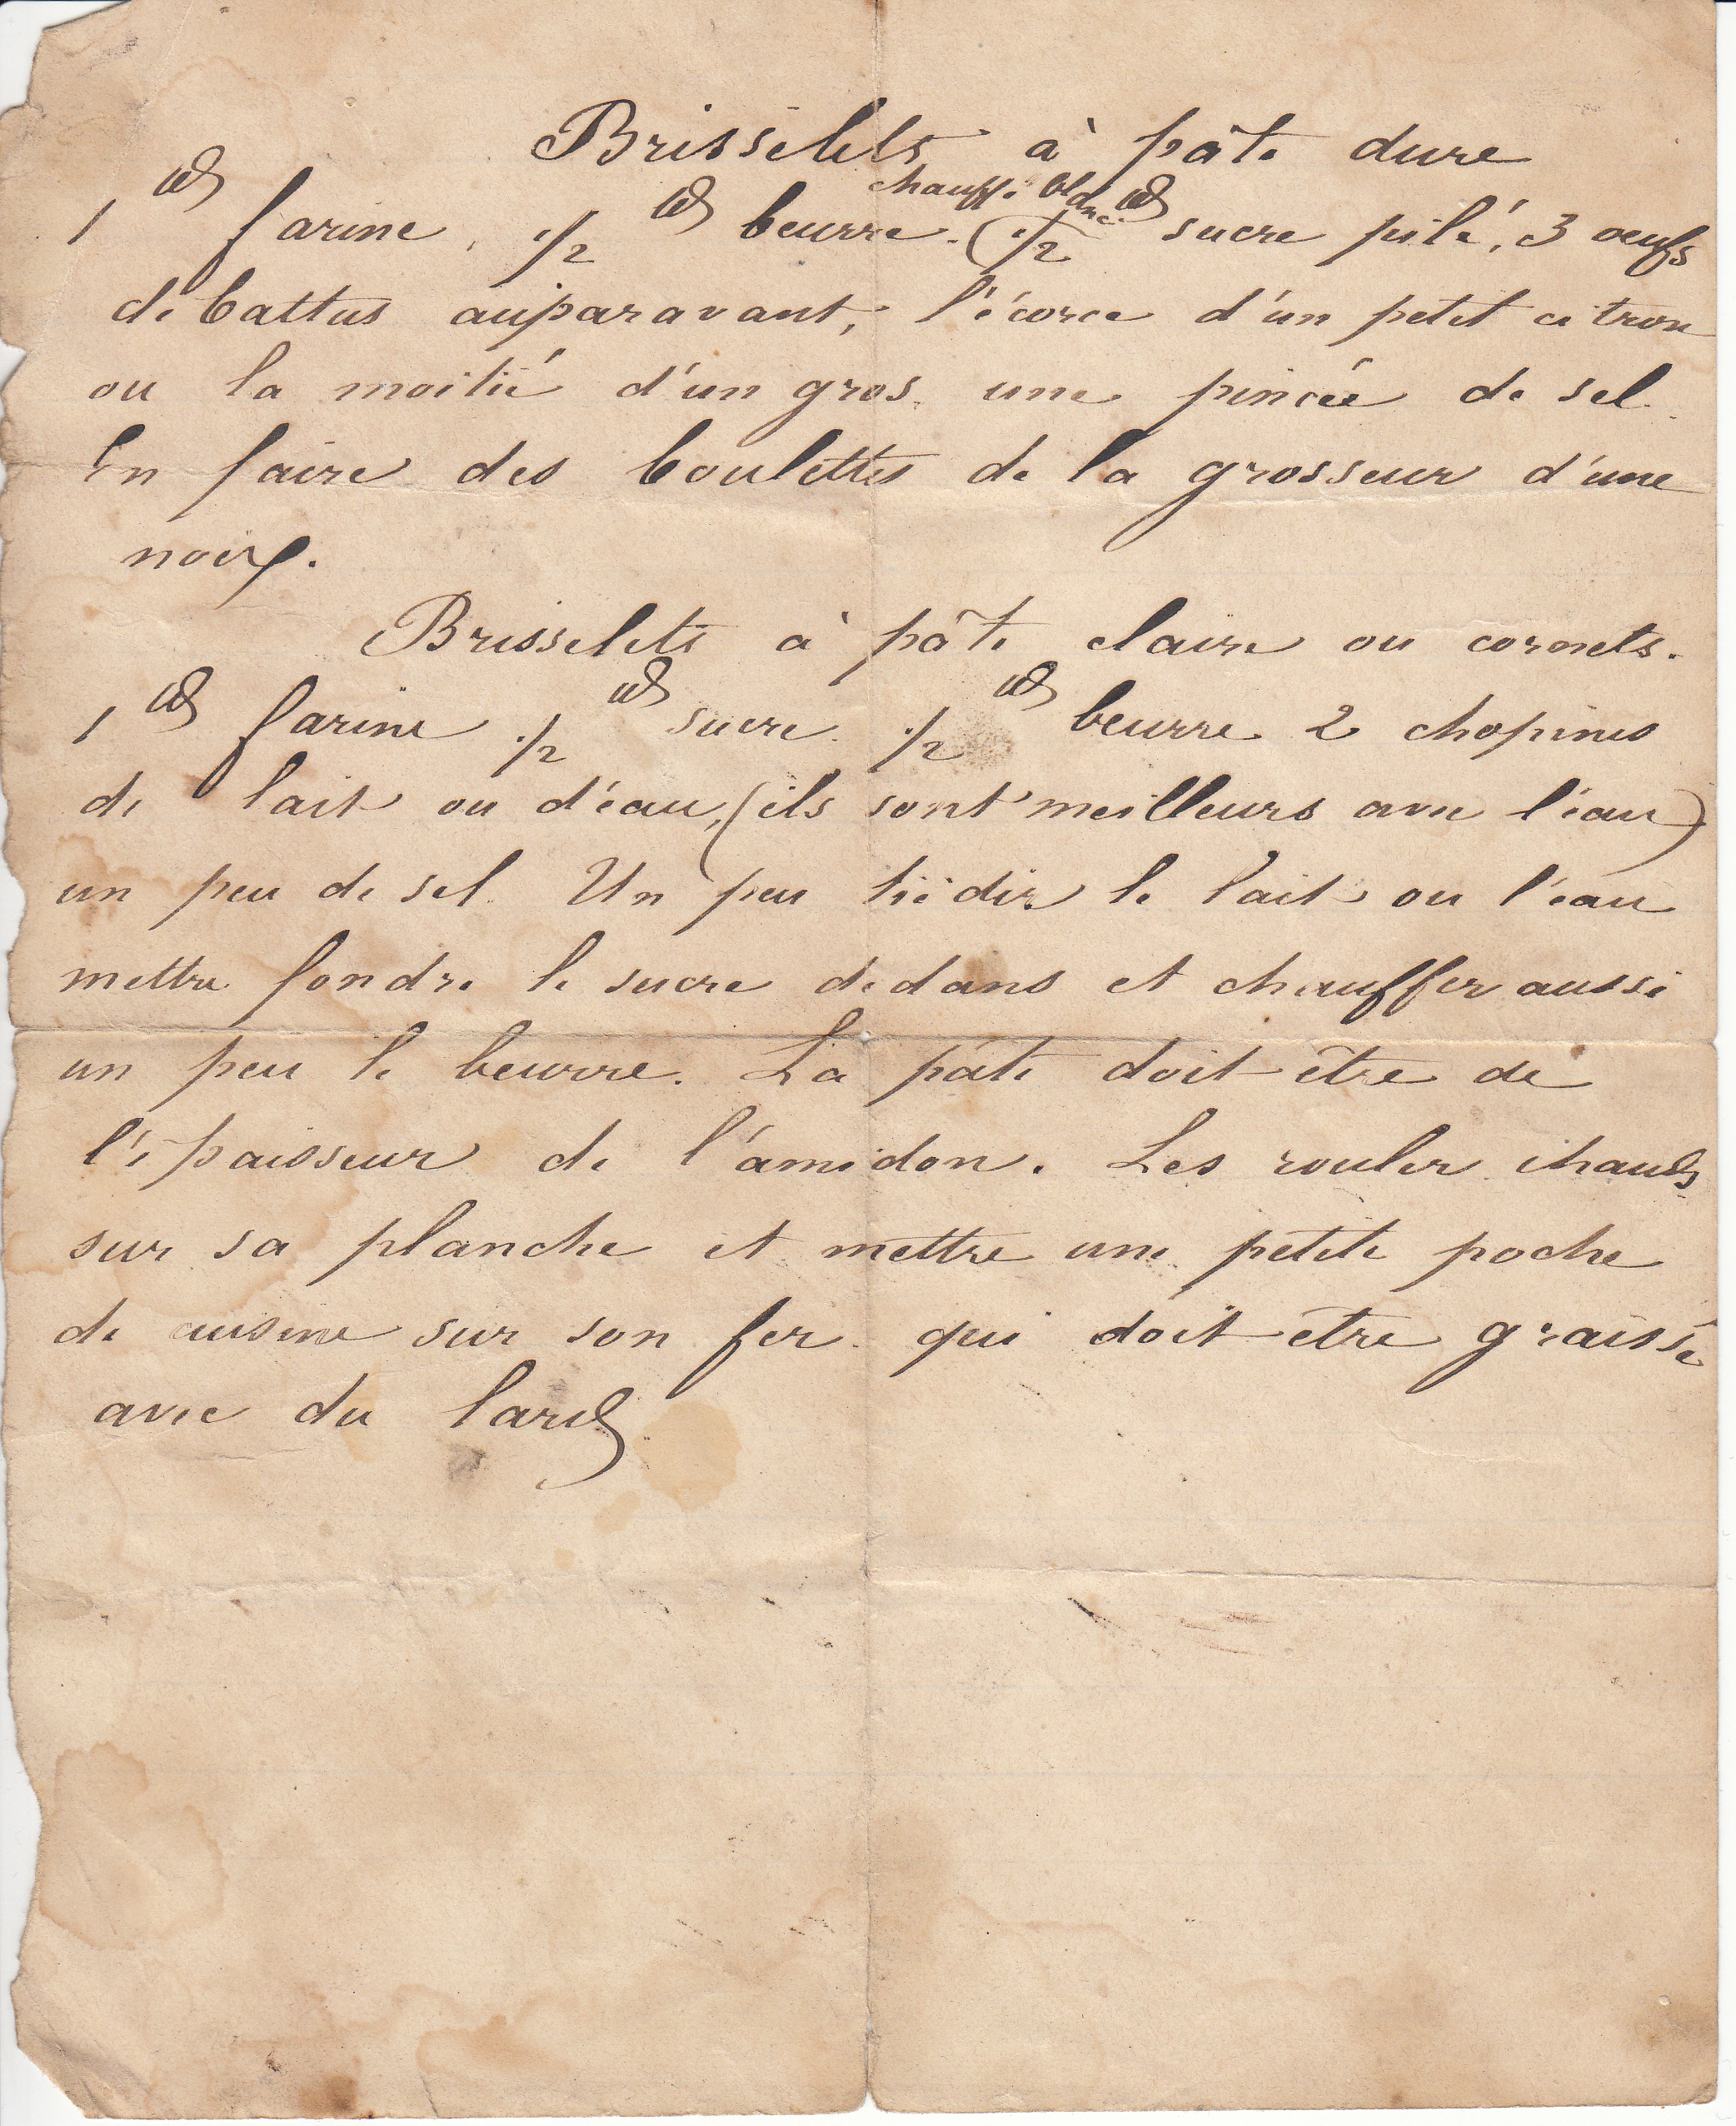 Brisselets à pâte dure
chauffé blanc
1 ℔ farine, 1/2 ℔ beurre. (1/2 ℔ sucre pilé, 3 oeufs
débattus auparavant, l'écorce d'un petit citron
ou la moitié d'un gros, une pincée de sel.
En faire des boulettes de la grosseur d'une
noix.
Brisselets à pâte claire ou cornets.
1 ℔ farine 1/2 ℔ sucre. 1/2 ℔ beurre 2 chopines
de lait ou d'eau, (ils sont meilleurs avec l'eau)
un peu de sel. Un peu tiédir le lait ou l'eau
mettre fondre le sucre dedans et chauffer aussi
un peu le beurre. La pâte doit être de
l'épaisseur de l'amidon. Les rouler chauds
sur sa planche et mettre une petite poche
de cuisine sur son fer. qui doit être graissé
avec du lard